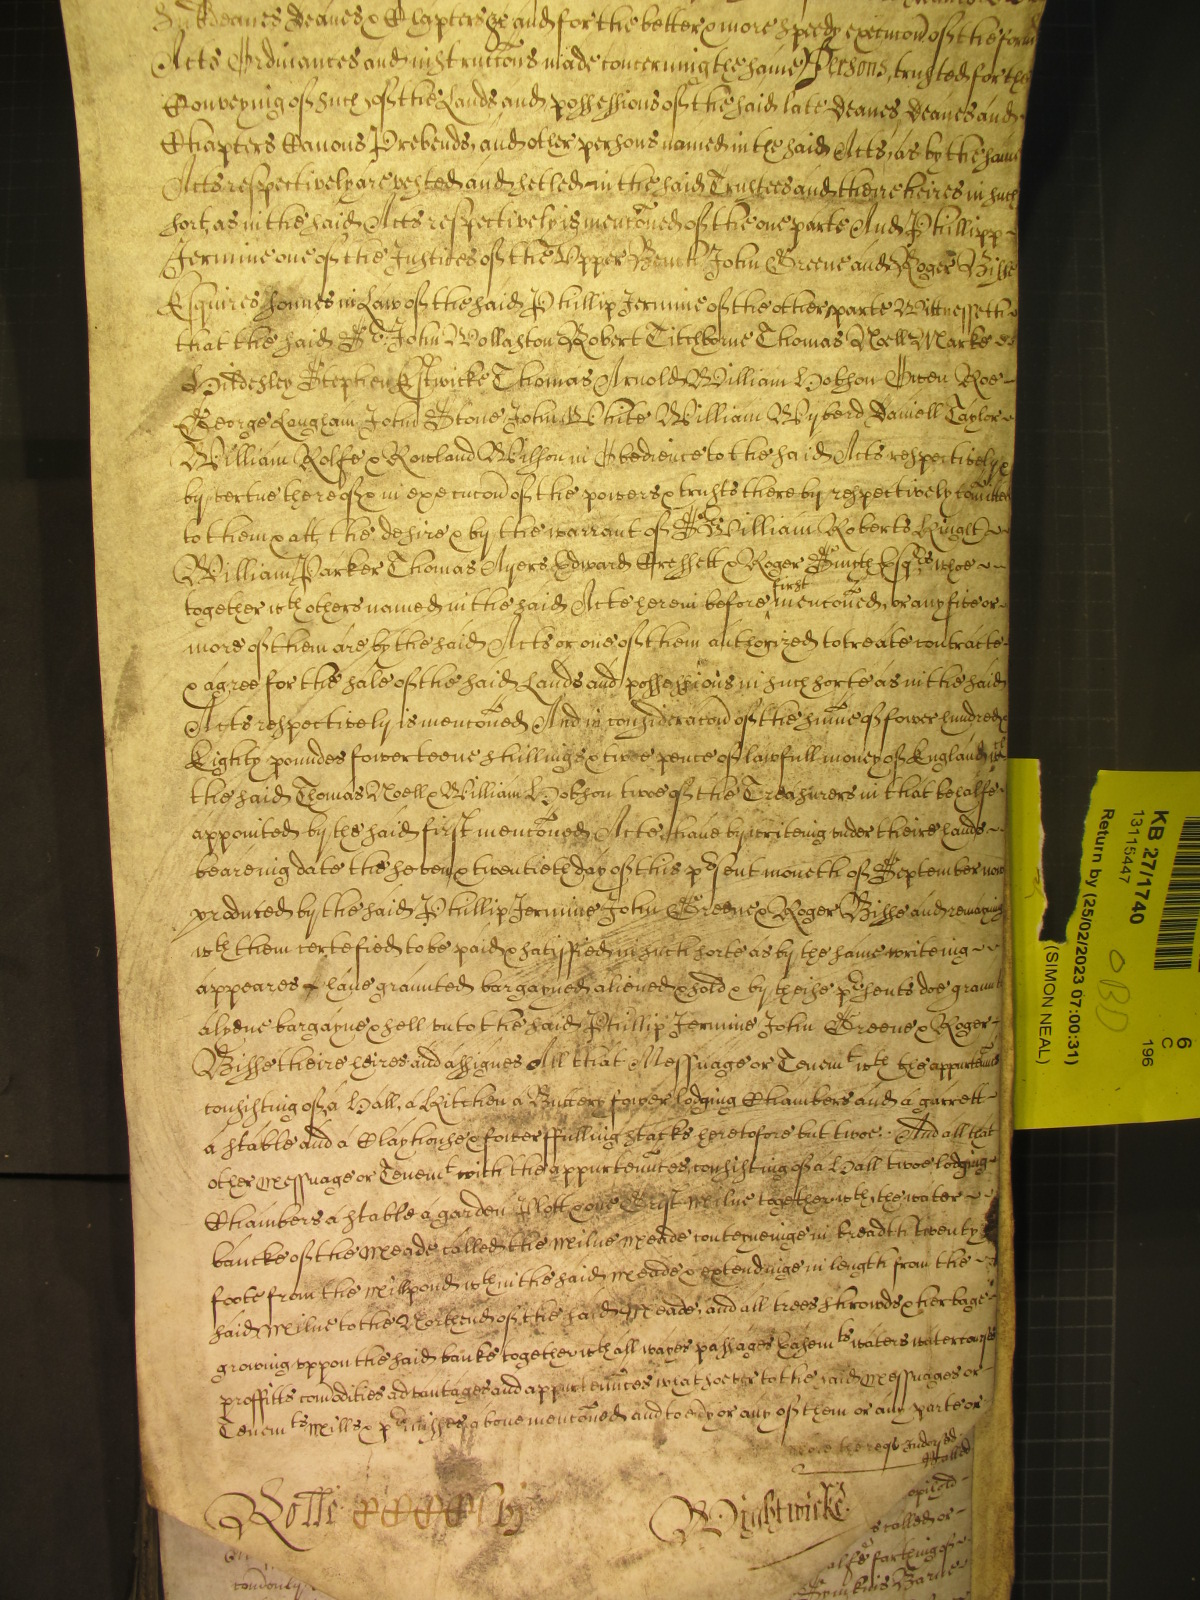 Deanes Deanes & Chapters &c and for the better & more speedy execucon of the said
Acts Ordinances and instruccons made concerning the same Persons, trusted for the
Conveying of such of the Lands and possessions of the said late Deanes, Deanes and
Chapters Canons Prebends, and other persons named in the said Acts, as by the same
Acts respectively are vested and setled in the said Trustees and theire heires in such
sort, as in the said Acts respectively is menconed of the one parte And Phillipp
Jermine one of the Justices of the Upper Bench John Greene and Roger Bisse
Esquires sonnes in Law of the said Phillip Jermine of the other parte Wittnesseth
that the said Sr. John Wollaston Robert Titchborne Thomas Noell Marke
Hildesley Stephen Estwicke Thomas Arnold William Hobson Owen Roe
George Langham John Stone John White William Wyberd Daniell Taylor
William Rolfe & Rowland Wilson in Obedience to the said Acts respectively &
by vertue thereof & in execucon of the powers & trusts thereby respectively comitted
to them & att the desire & by the warrant of Sr William Roberts Knight
William Parker Thomas Ayers Edward Cressett & Roger Smyth Esqrs. whoe
together wth others named in the said Acte herein before first menconed, or any five or
more of them are by the said Acts or one of them authorized to treate contracte
& agree for the sale of the said Lands and possessions in such sorte as in the said
Acts respectively is menconed And in consideracon of the sume of fower hundred
Eighty poundes fowerteene shillings & twoe pence of lawfull money of England wch
the said Thomas Noell & William Hobson twoe of the Treasurers in that behalfe
appointed by the said first menconed Acte, have by writeing under theire hands
beareing date the seven & twentieth day of this present moneth of September now
produced by the said Phillip Jermine John Greene & Roger Bisse and remaying
wth them certefied to be paid & satisfied in such sorte as by the same writeing
appeares have graunted bargayned aliened & sold & by theise presents doe graunt
alyene bargayne & sell unto the said Phillip Jermine John Greene & Roger
Bisse theire heires and assignes All that Messuage or Tenemt wth the appurtenncs
consisting of a Hall, a Kitchen a Buttery fower lodging Chambers and a garrett
a stable and a Clayhouse & fower ffulling stocks heretofore but twoe. And all that
other Messuage or Tenemt with the appurtennces, consisting of a Hall twoe lodging
Chambers a stable a garden Plott & one Grist Milne together wth the water
bancke of the Meade called the Milne Meade conteyneinge in breadth twenty
foote from the Millpond wthin the said Meade & extendinge in length from the
said Milne to the North end of the said Meade, and all trees shrowds & herbage
growing uppon the said banke together wth all wayes passages Easemts waters watercourses
proffitts comodities advantages and appurtennces whatsoever to the said Messuages or
Tenemts Mills & premisses above menconed and to every or any of them or any parte or
Rolle
Wightwicke
called
copihold
called or
halfe farthing of
Barne
comonly
KB 27/1740
13115447
Return by (25/02/2023 07:00:31)
(SIMON NEAL)
OBD
6
C
196